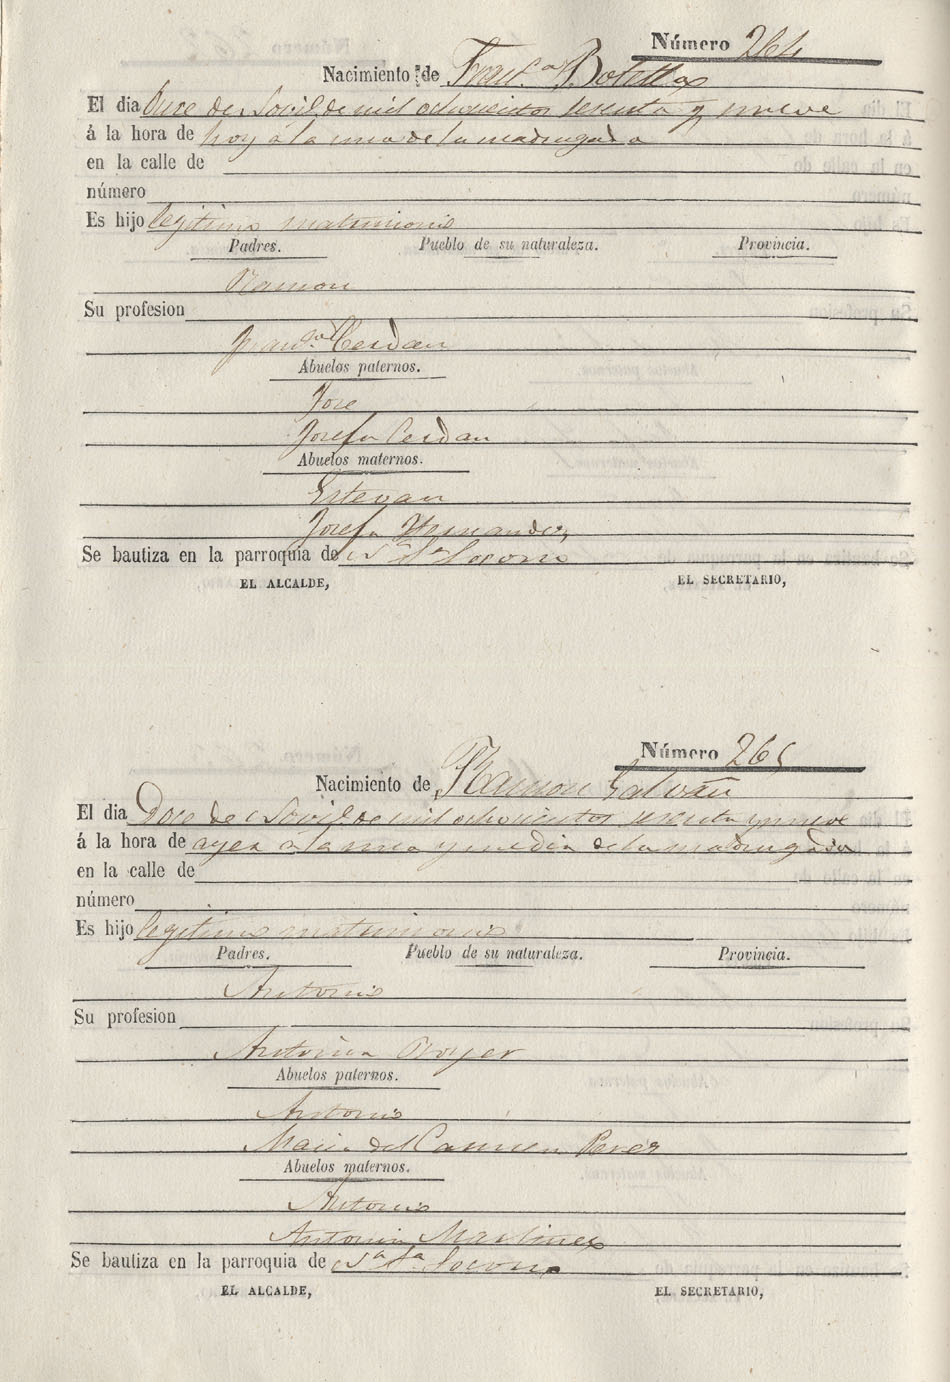 Número 264
Nacimiento de Fran.ca Botella
El dia Doce de Abril de mil ochocientos sesenta y nueve
á la hora de hoy á la una de la madrugada
en la calle de
número
Es hijo legitimo matrimonio
Padres. Pueblo de su naturaleza. Provincia.
Ramon
Su profesion
Fran.ca Cerdan
Abuelos paternos.
Jose
Josefa Cerdan
Abuelos maternos.
Estevan
Josefa Hernandez
Se bautiza en la parroquia de N.a S.a Socorro
EL ALCALDE, EL SECRETARIO,
Número 265
Nacimiento de Ramon Galvañ
El dia Doce de Abril de mil ochocientos sesenta y nueve
á la hora de ayer a la una y media de la madrugada
en la calle de
número
Es hijo legitimo matrimonio
Padres. Pueblo de su naturaleza. Provincia.
Antonio
Su profesion
Antonia
Abuelos paternos.
Antonio
Maria del Carmen Perez
Abuelos maternos.
Antonio
Antonia Martinez
Se bautiza en la parroquia de N.a S.a Socorro
EL ALCALDE, EL SECRETARIO,